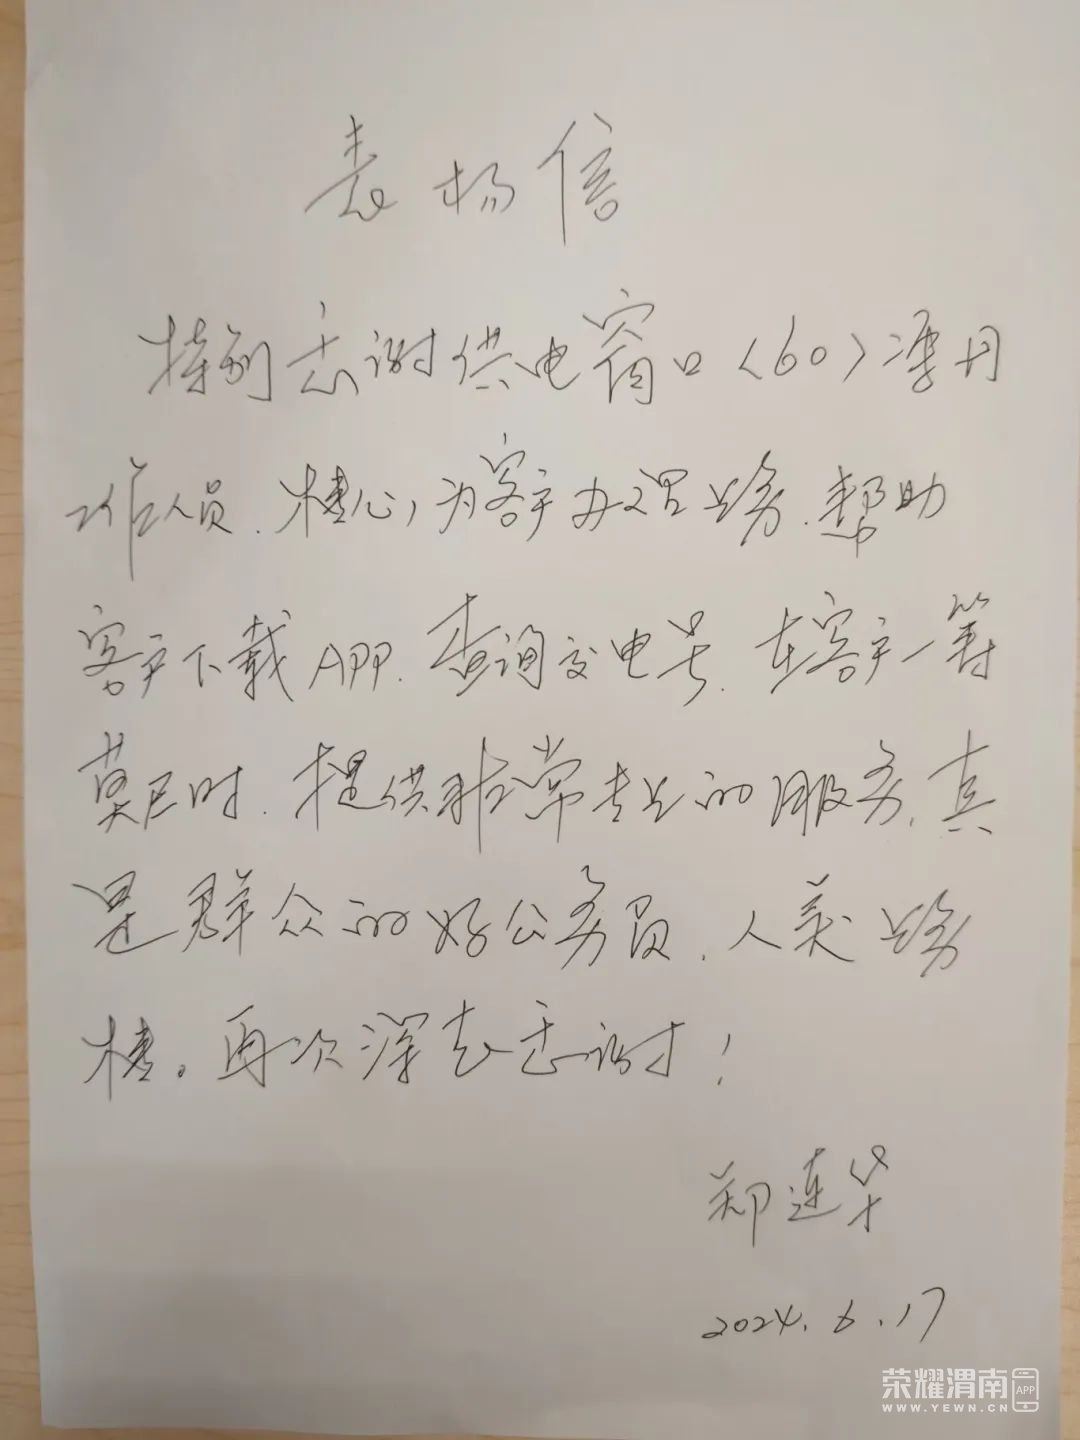 表扬信
特别感谢供电窗口〈60〉
工作人员、精心,为客户办理业务、帮助
客户下载APP、查询交电号、在客户一筹
莫展时、提供非常专业的服务,真
是群众的好公务员、人美业务
精。再次深表感谢!
郑连华
2024.6.17
荣耀渭南
APP
WWW.YEWN.CN